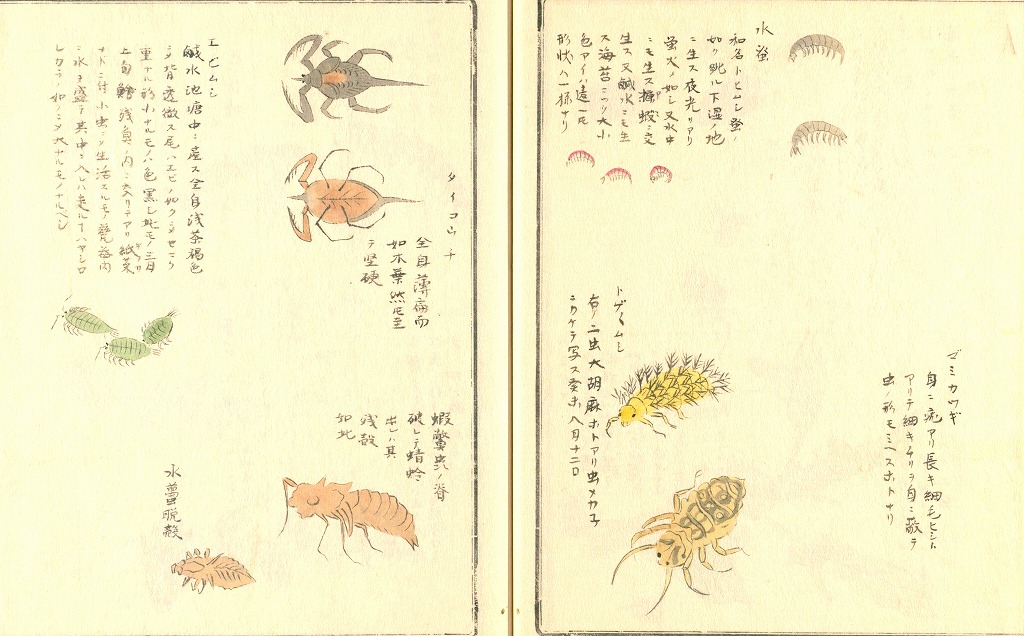 水蛍
和名トヒムシ蛍ノ
如ク眺ル下湿ノ地
ニ生ス夜光リアリ
蛍火ノ如シ又水中
ニモ生ス 蝦ニ交
生ス又鹹水ニモ生
ス海苔ニツク大小
色アイハ違一ト
形状ハ一様ナリ
ゴミカツギ
身ニ疣アリ長キ細毛ヒシト
アリテ細キチリヲ自ニ蔽テ
虫ノ形モミヘスホトナリ
トゲムシ
右ノ二虫大胡麻ホトアリ虫メカ子
ニカケテ写ス癸未八月十二日
タイコウチ
全身薄扁而
如木葉然ト至
テ堅硬
エビムシ
鹹水池塘中ニ産ス全身浅茶褐色
ニメ背透徹ス尾ハエビノ如クニメ
重ナル形小ナルモノハ色黒シ此モノ三月
上旬 残魚ノ内ニ入リテアリ紙菜
ナドニ付小虫ニ生活スルモノ
ニ水ヲ盛テ其中ニ入レハ走ルヿハヤシ
レカラノ如ニメ大ナルモノナルヘシ
蝦鱉虫ノ脊
破レテ蜻蛉
ホレハ其
残殻
如此
水蠆脱殻